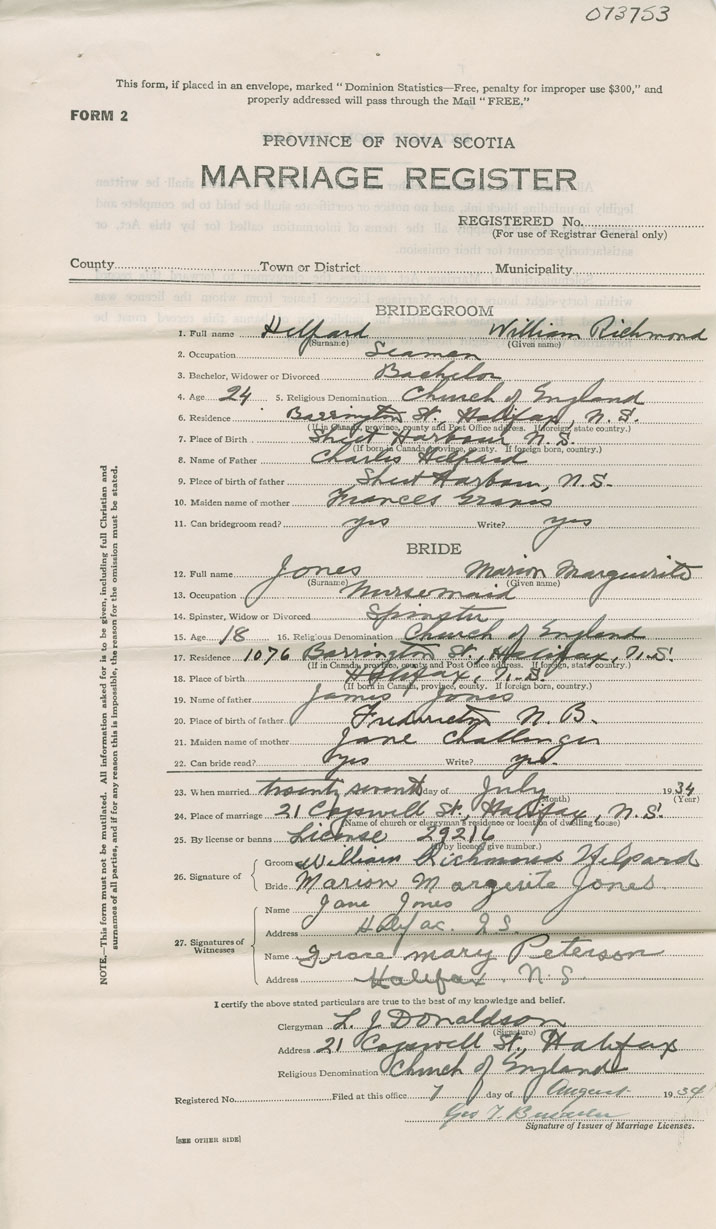 073753
This form, if placed in an envelope, marked "Dominion Statistics—Free, penalty for improper use $300," and
properly addressed will pass through the Mail "FREE."
FORM 2
PROVINCE OF NOVA SCOTIA
MARRIAGE REGISTER
REGISTERED No.
(For use of Registrar General only)
County Town or District Municipality
BRIDEGROOM
1. Full name Hilpard William Richmond
(Surname) (Given name)
2. Occupation Seaman
3. Bachelor, Widower or Divorced Bachelor
4. Age 24 5. Religious Denomination Church of England
6. Residence Barrington St, Halifax, N.S.
(If in Canada, province, county and Post Office address. If foreign, state country.)
7. Place of Birth Sheet Harbour N.S.
(If born in Canada, province, county. If foreign born, country.)
8. Name of Father Charles Hilpard
9. Place of birth of father Sheet Harbour, N.S.
10. Maiden name of mother Frances Graves
11. Can bridegroom read? yes Write? yes
BRIDE
12. Full name Jones Marion Marguerite
(Surname) (Given name)
13. Occupation Nursemaid
14. Spinster, Widow or Divorced Spinster
15. Age 18 16. Religious Denomination Church of England
17. Residence 1076 Barrington St, Halifax, N.S.
(If in Canada, province, county and Post Office address. If foreign, state country.)
18. Place of birth Halifax, N.S.
(If born in Canada, province, county. If foreign born, country.)
19. Name of father James Jones
20. Place of birth of father Fredericton N.B.
21. Maiden name of mother Jane Challinger
22. Can bride read? yes Write? yes
23. When married twenty seventh day of July 1934
(Month) (Year)
24. Place of marriage 21 Cogswell St, Halifax, N.S.
(Name of church or clergyman's residence or location of dwelling house)
25. By license or banns License 29216
(If by license, give number.)
26. Signature of Groom William Richmond Hilpard
Bride Marion Margerite Jones
27. Signatures of Witnesses
Name Jane Jones
Address Halifax. N.S.
Name Grace Mary Peterson
Address Halifax N.S.
I certify the above stated particulars are true to the best of my knowledge and belief.
Clergyman L. J. Donaldson
(Signature)
Address 21 Cogswell St, Halifax
Religious Denomination Church of England
Registered No. Filed at this office 7 day of August 1934
Geo T.
Signature of Issuer of Marriage Licenses.
[SEE OTHER SIDE]
NOTE.—This form must not be mutilated. All information asked for is to be given, including full Christian and
surnames of all parties, and if for any reason this is impossible, the reason for the omission must be stated.